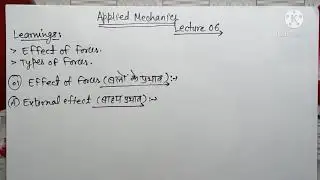 Applied Mechanics
Lecture 06
Learnings:
> Effect of forces.
> Types of Forces.
01 Effect of forces (बलों के प्रभाव):-
A External effect (बाह्य प्रभाव):-